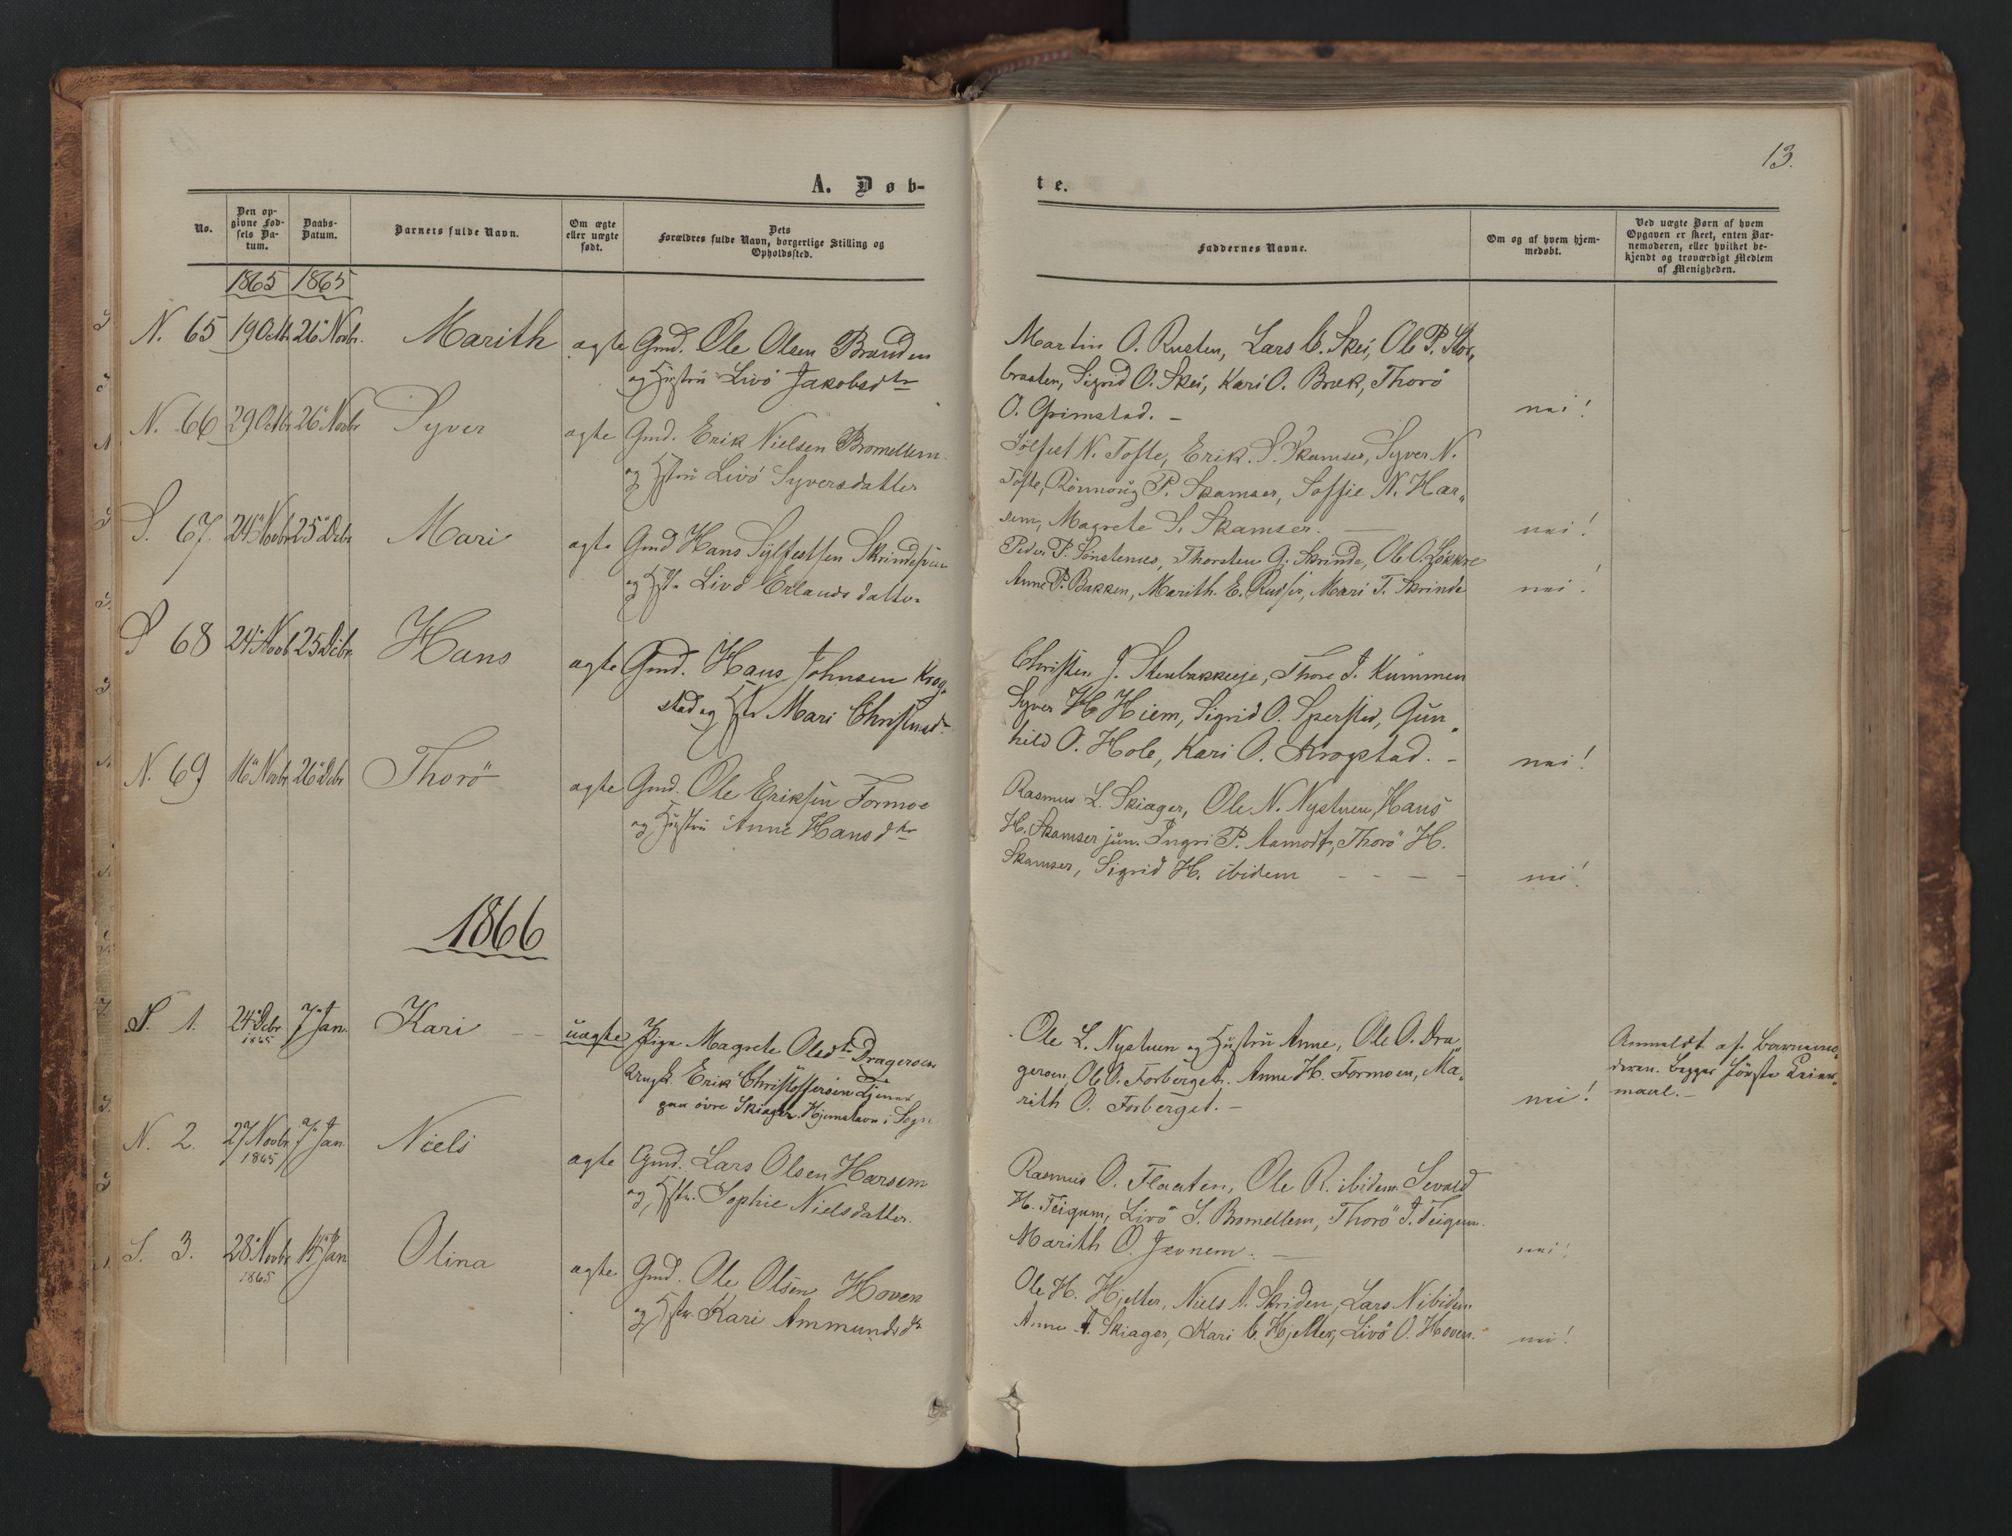 13.
A. Døb-
te.
No.
Den op-
givne Fød-
sels Da-
tum.
Daabs-
Datum.
Barnets fulde Navn.
Om ægte
eller uægte
født.
Dets
Forældres fulde Navn, borgerlige Stilling og
Opholdssted.
Faddernes Navne.
Om og af hvem hjem-
medøbt.
Ved uægte Børn af hvem
Opgaven er skeet, enten Bar-
nemoderen, eller hvilket be-
kjendt og troværdigt Medlem
af Menigheden.
1865 1865
N. 65 19 Octbr 26 Novbr. Marith ægte Gmd. Ole Olsen Branden
og Hustru Livö Jakobsdtr
Martin O. Rusten, Lars C. Skei, Ole P. Stor-
braaten, Sigrid O. Skei, Kari O. Bræk, Thorö
O. Grimstad. –
nei!
N. 66 29 Octbr 26 Novbr Syver ægte Gmd. Erik Nielsen Bromellem
og Hstru Livö Syversdatter
Sölfest N. Tofte, Erik S. Skamser, Syver N.
Tofte, Rönnoug P. Skamser, Soffie N. Har-
sem, Magrete S. Skamser.
nei!
S. 67. 24 Novbr 25 Debr Mari ægte Gmd Hans Sylfestsen
og Livö Erlandsdatter
Peder P. Sönstenes, Thorsten G. Skrinde, Ole O. Lökkre
Anne P. Bakken, Marith E. Mari T. Skrinde
nei!
S 68 24 Novb 25 Debr. Hans ægte Gmd. Hans Johnsen Krog-
stad og Mari Christensd
Christen J. Thore J. Kummen
Syver H Hiem, Sigrid O. Spersted, Gun-
hild O. Hole, Kari O. Krogstad. –
nei!
N. 69 16 Novbr 26 Debr Thorö ægte Gmd. Ole Eriksen Formoe
og Hustru Anne Hansdtr
Rasmus L. Skiager, Ole N. Nystuen, Hans
H. Skamser jun. Ingri P. Aamodt, Thorö H.
Skamser, Sigrid H. ibidem – – – –
nei!
1866
S. 1. 24 Debr 7 Jan. Kari uægte Pige Magrete Olsdtr Drageroen
1865
Ungk. Erik Christoffersen Tjener
paa övre Skiager. Hjemstavn i Sogn
Ole L. Nystuen og Hustru Anne, Ole O. Dra-
geroen, Ole O. Forberget. Anne H. Formoen, Ma-
rith O. Forberget. –
nei!
Anmeldt af Barnemo-
deren. Begges förste Leier-
maal. –
N. 2. 27 Novbr 7 Jan Niels ægte Gmd. Lars Olsen Harsem
1865
og Hstr. Sophie Nielsdatter.
Rasmus O. Flaaten, Ole R. ibidem Sevald
H. Teigum, Livö S. Bromellem, Thorö J. Teigum.
Marith O. Jevnem.
nei!
S. 3. 28 Novbr 14 Jan Olina ægte Gmd. Ole Olsen Hoven
1865
og Hstr. Kari Ammundsdtr
Ole H. Hjelter, Niels A. Skriden, Lars N ibidem
Anne A. Skiager, Kari C. Hjelter, Livö O. Hoven.
nei!